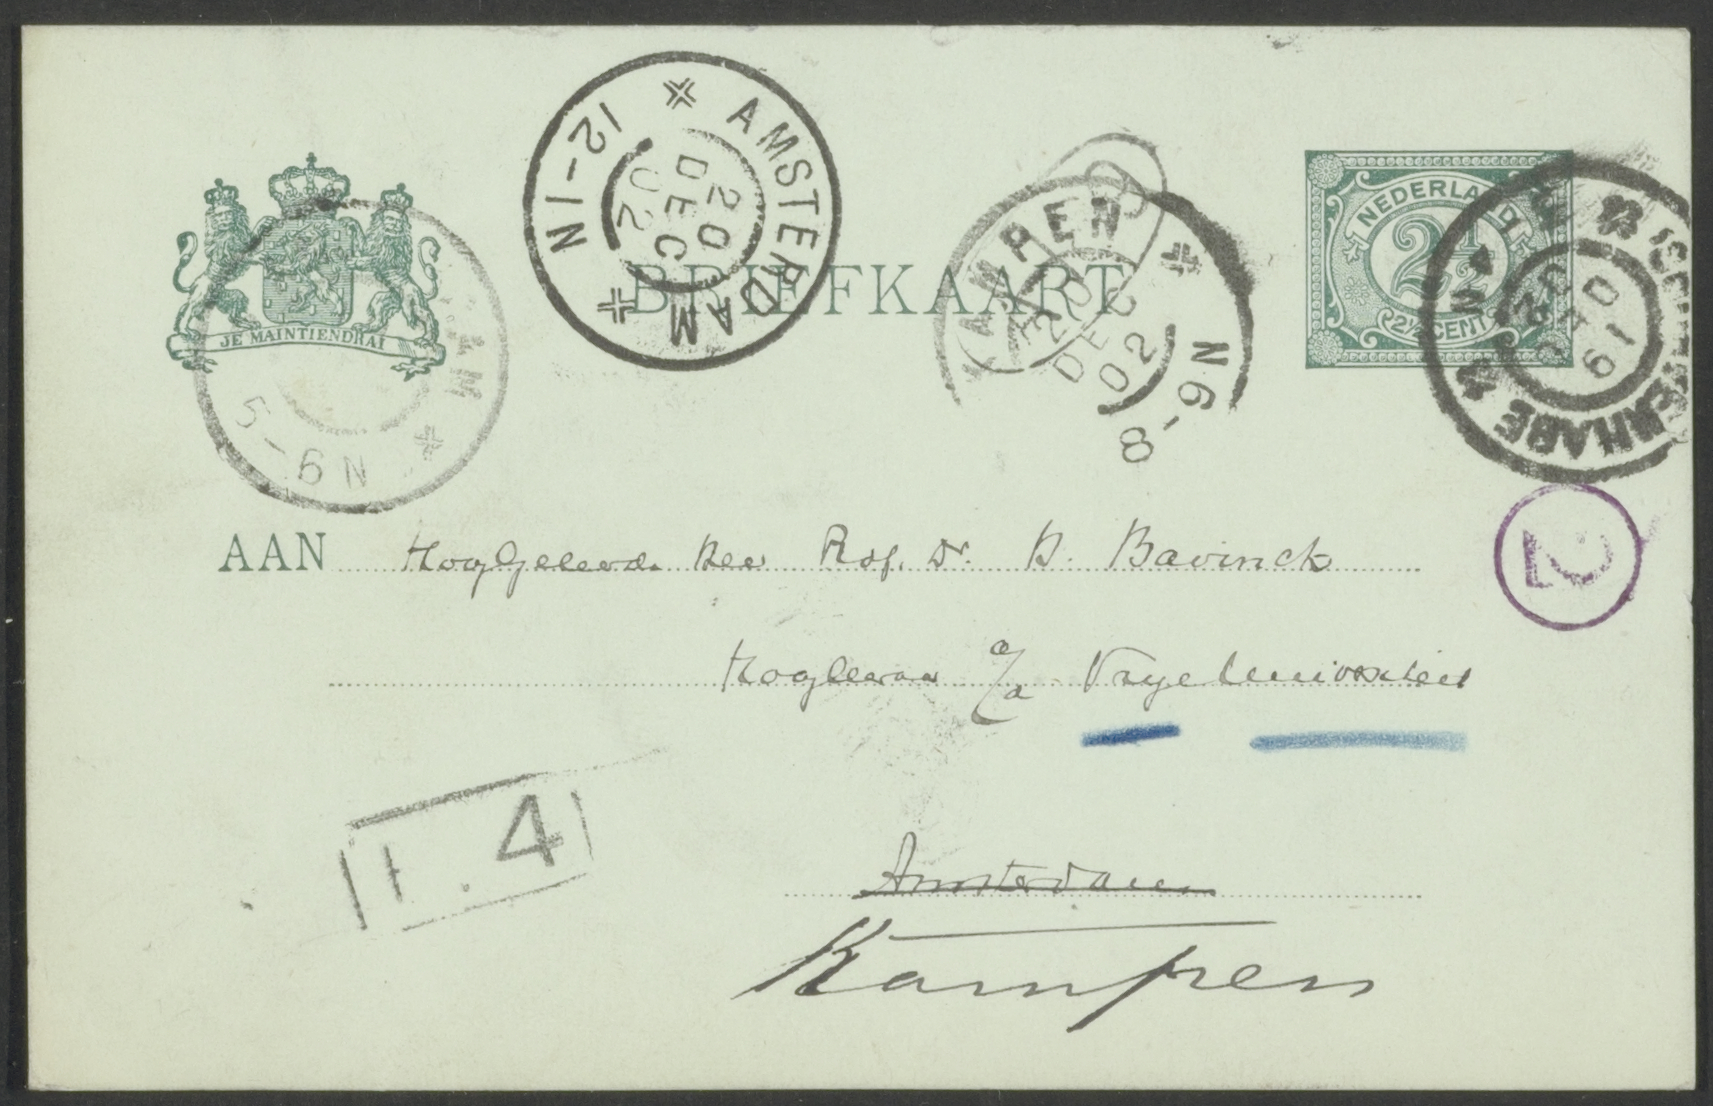 JE MAINTIENDRAI
BRIEFKAART
NEDERLAND
2½
2½ CENT
AMSTERDAM
20
DEC
02
12-1N
KAMPEN
20
DEC
02
8-9N
19
02
5-6N
2
AAN HoogGeleerde Heer Prof. Dr. H. Bavinck
Hoogleeraar a/d Vrije Universiteit
Amsterdam
Kampen
4